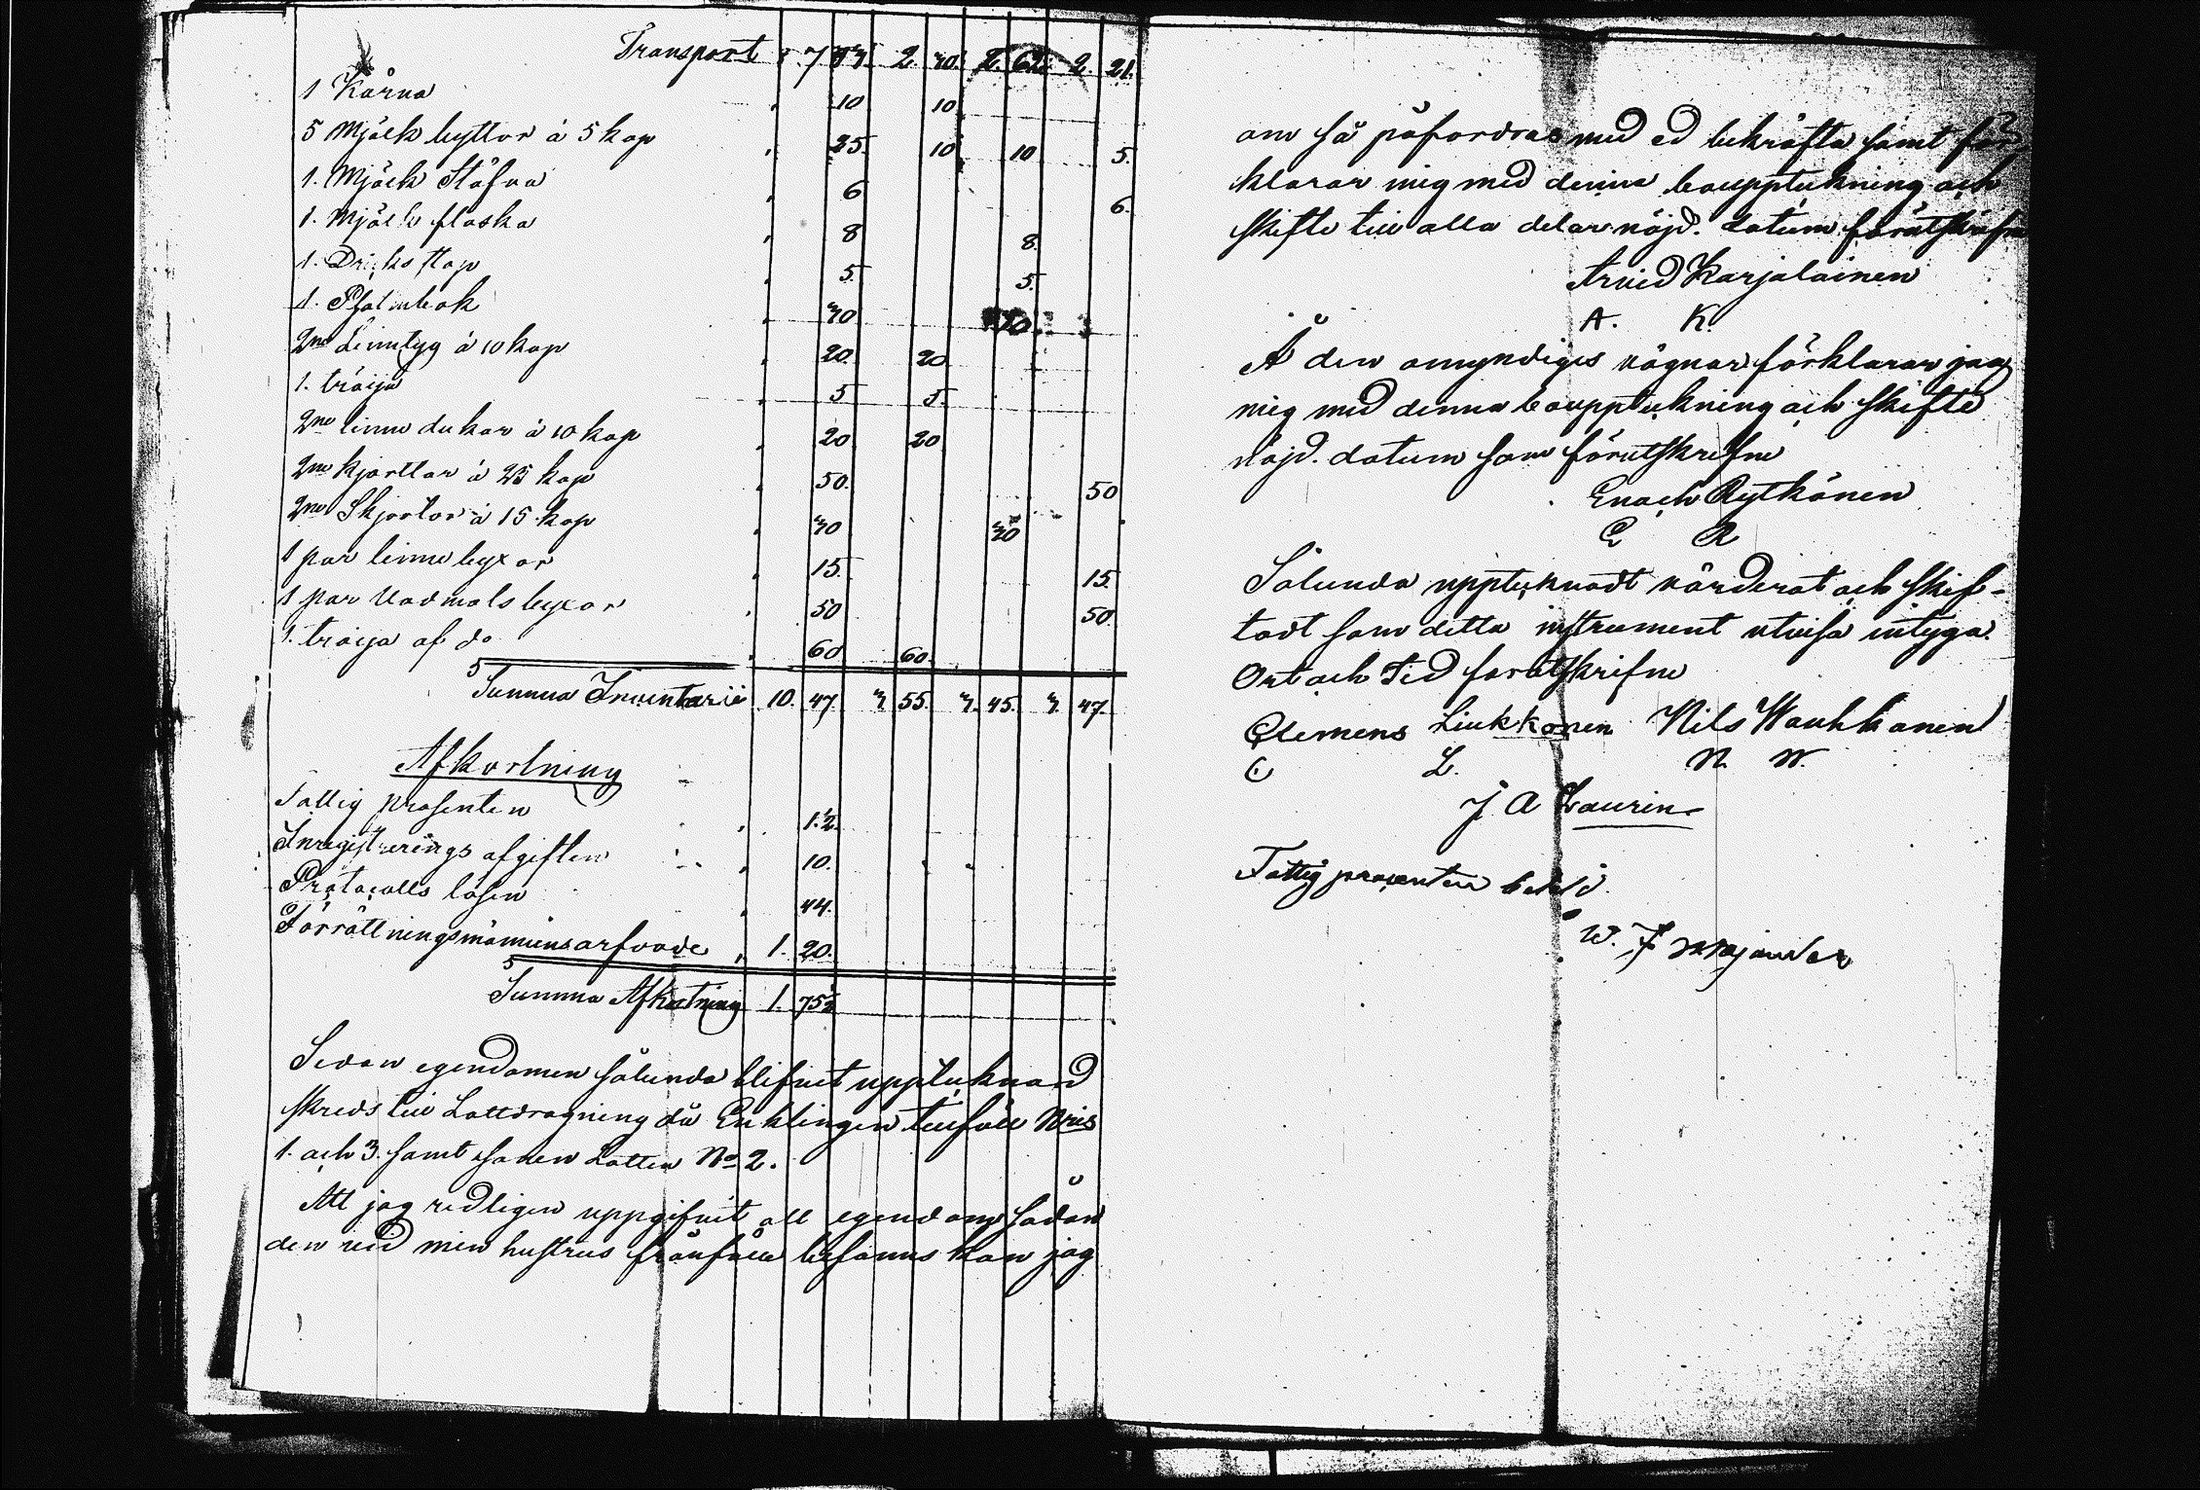 Transport 7 2. 30. 2. 62. 2. 21.
1 Kärna 10 10
5 Mjölk byttor à 5 kop 25. 10 10 5.
1. Mjölk Stäfva 6 6.
1. Mjölk flaska 8 8.
1. Dricks stop 5. 5.
1. Psalmbok 30 30
2ne Linntyg à 10 kop 20. 20
1. tröija 5 5.
2ne linne dukar à 10 kop 20 20
2ne kjorttlar à 25 kop 50. 50
2ne Skjortor à 15. kop 30 30
1 par linne byxor 15. 15.
1 par Vadmals byxor 50 50.
1. tröija af do 60 60.
Summa Inventarii 10. 47. 3. 55. 3. 45. 3. 47.
Afkortning
Fattig prosenten 1.2.
Inregistrerings afgiften 10.
Protocolls lösen 44.
Förrättningsmännens arfvode 1. 20.
Summa Afkortning 1. 75½
Sedan egendomen sålunda blifvit upptecknad
skreds till Lottdragning då Enklingen tillföll Nris
1. och 3. samt sonen Lotten No 2.
Att jag redligen uppgifvit all egendom sådan
den vid min hustrus frånfälle befanns kan jag
om så påfordras med ed bekräfta samt för
klarar mig med denna bouppteckning och
skifte till alla delar nöjd. Datum förutskrifne
Arvid Karjalainen
A. K.
Å den omyndiges vägnar förklarar jag
mig med denna bouppteckning och skifte
nöjd. datum som förutskrifne
Enoch Rytkönen
E R
Sålunda upptecknadt värderat och skif-
tadt som detta instrument utvisa intyga.
Ort och Tid förutskrifne
Clemens Liukkonen Nils Wauhkonen
C L. N. W.
J. A Laurin
Fattig procenten betald.